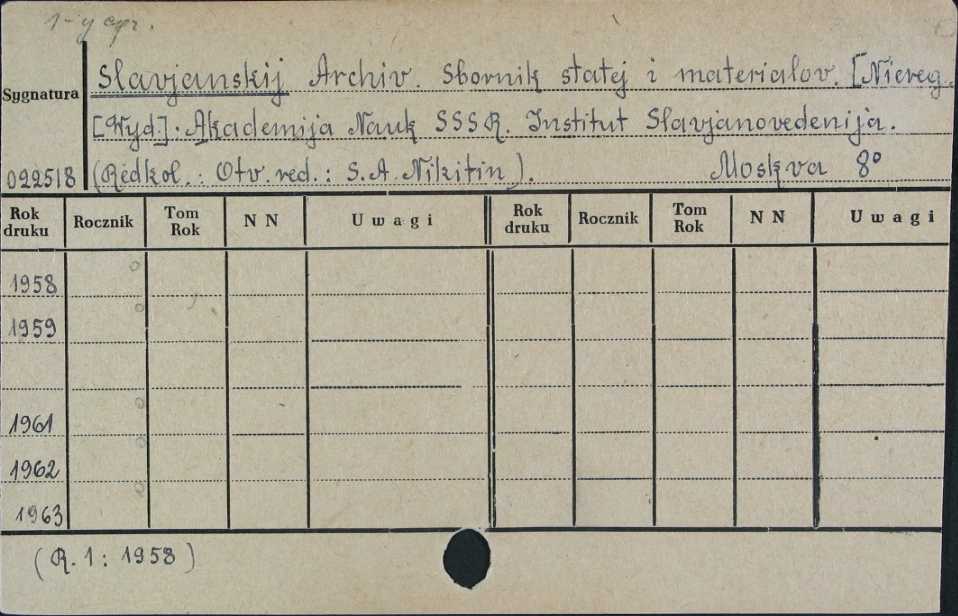 Slavjanskij Archiv. Sbornik statej i materialov. [Niereg.
Sygnatura
[Wyd]: Akademija Nauk SSSR. Institut Slavjanovedenija.
022518 (Redkol.: Otv. red.: S.A. Nikitin). Moskva 8º
Rok druku Rocznik Tom Rok N N Uwagi Rok druku Rocznik Tom Rok N N Uwagi
1958
1959
1961
1962
1963
(R. 1: 1958)